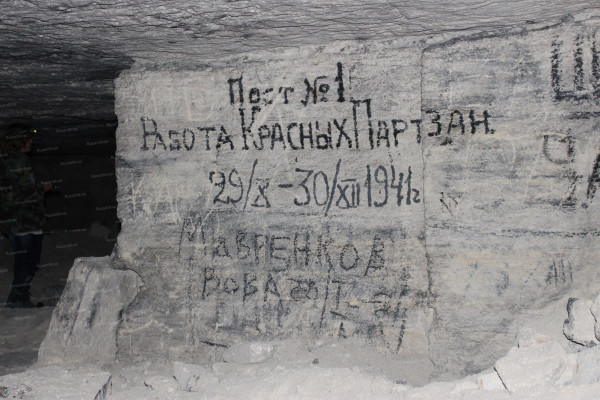 Пост № 1
Работа Красных Партзан.
29/X - 30/XII 1941г
Мавренков
Вова 20/I